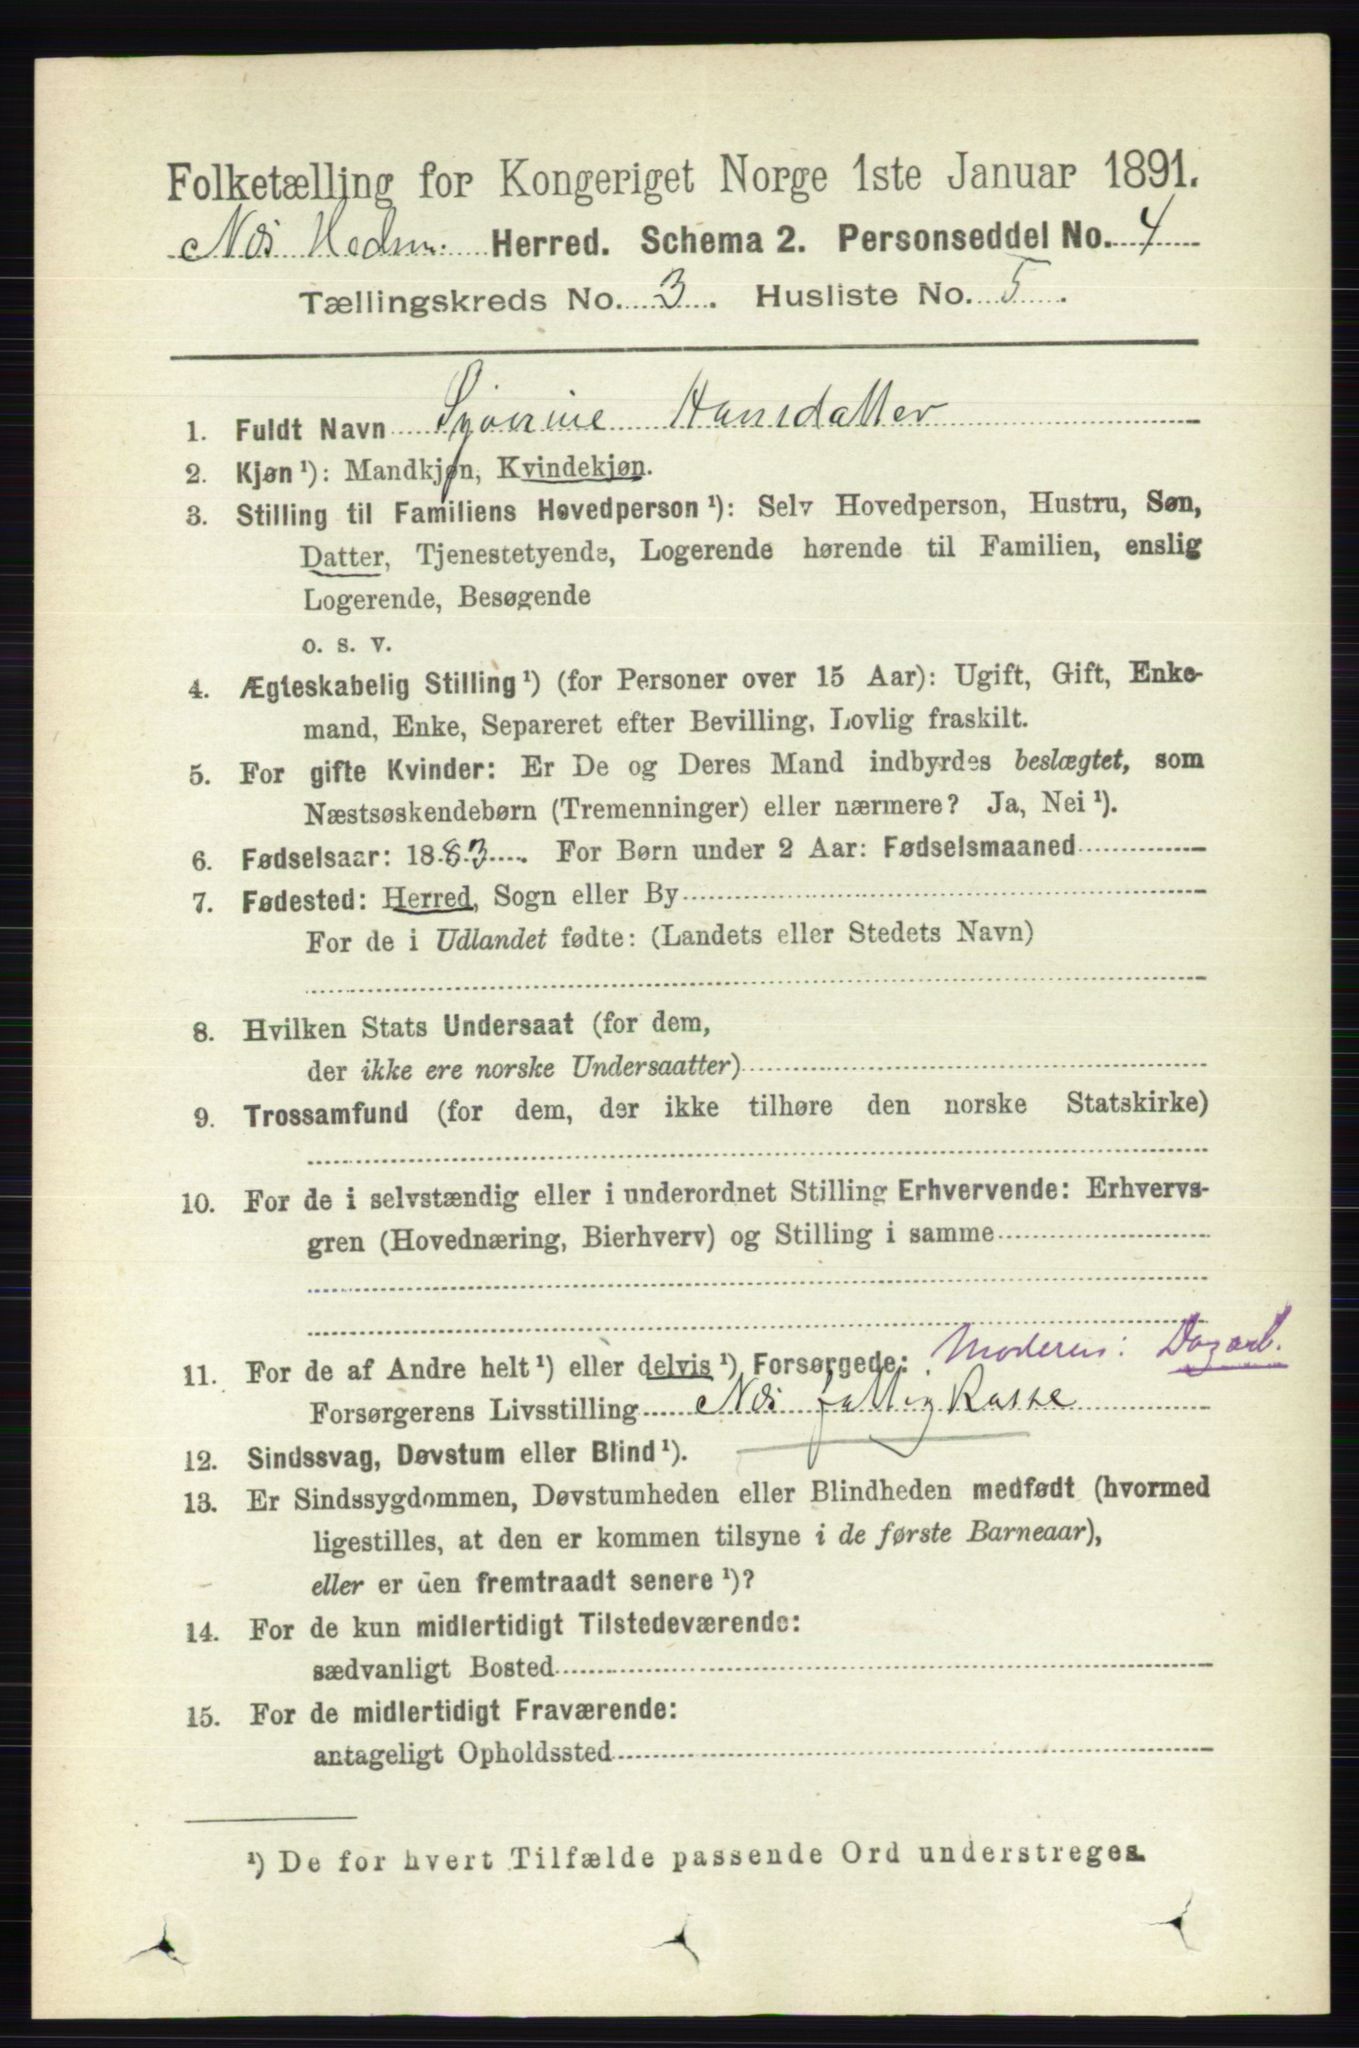 Folketælling for Kongeriget Norge 1ste Januar 1891.
Nes Hedm. Herred. Schema 2. Personseddel No. 4
Tællingskreds No. 3. Husliste No. 5.
1. Fuldt Navn Hansdatter
2. Kjøn ¹): Mandkjøn, Kvindekjøn.
3. Stilling til Familiens Hovedperson ¹): Selv Hovedperson, Hustru, Søn,
Datter, Tjenestetyende, Logerende hørende til Familien, enslig
Logerende, Besøgende
o. s. v.
4. Ægteskabelig Stilling ¹) (for Personer over 15 Aar): Ugift, Gift, Enke-
mand, Enke, Separeret efter Bevilling, Lovlig fraskilt.
5. For gifte Kvinder: Er De og Deres Mand indbyrdes beslægtet, som
Næstsøskendebørn (Tremenninger) eller nærmere? Ja, Nei ¹).
6. Fødselsaar: 1883. For Børn under 2 Aar: Fødselsmaaned
7. Fødested: Herred, Sogn eller By
For de i Udlandet fødte: (Landets eller Stedets Navn)
8. Hvilken Stats Undersaat (for dem,
der ikke ere norske Undersaatter)
9. Trossamfund (for dem, der ikke tilhøre den norske Statskirke)
10. For de i selvstændig eller i underordnet Stilling Erhvervende: Erhvervs-
gren (Hovednæring, Bierhverv) og Stilling i samme
11. For de af Andre helt ¹) eller delvis ¹) Forsørgede: Moderens: Dagarb.
Forsørgerens Livsstilling Nes fattigkasse
12. Sindssvag, Døvstum eller Blind ¹).
13. Er Sindssygdommen, Døvstumheden eller Blindheden medfødt (hvormed
ligestilles, at den er kommen tilsyne i de første Barneaar),
eller er den fremtraadt senere ¹)?
14. For de kun midlertidigt Tilstedeværende:
sædvanligt Bosted
15. For de midlertidigt Fraværende:
antageligt Opholdssted
¹) De for hvert Tilfælde passende Ord understreges.